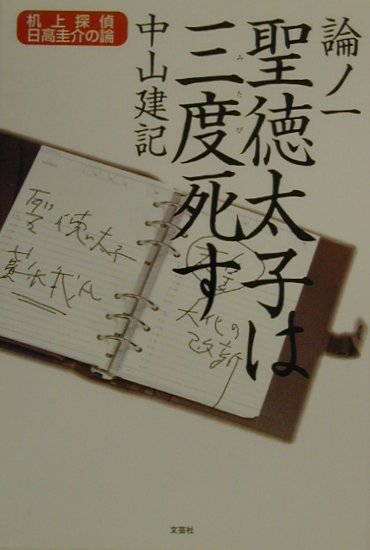 机上探偵
日高圭介の論
論ノ一
聖徳太子は
三度死す
みたび
中山建記
聖徳太子
蘇我氏
大化の
改新
文芸社